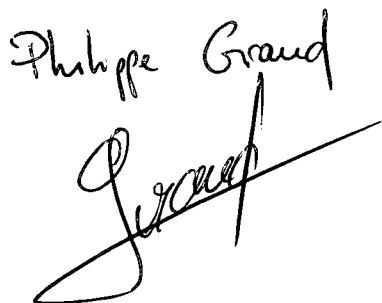 Philippe Giraud
Giraud